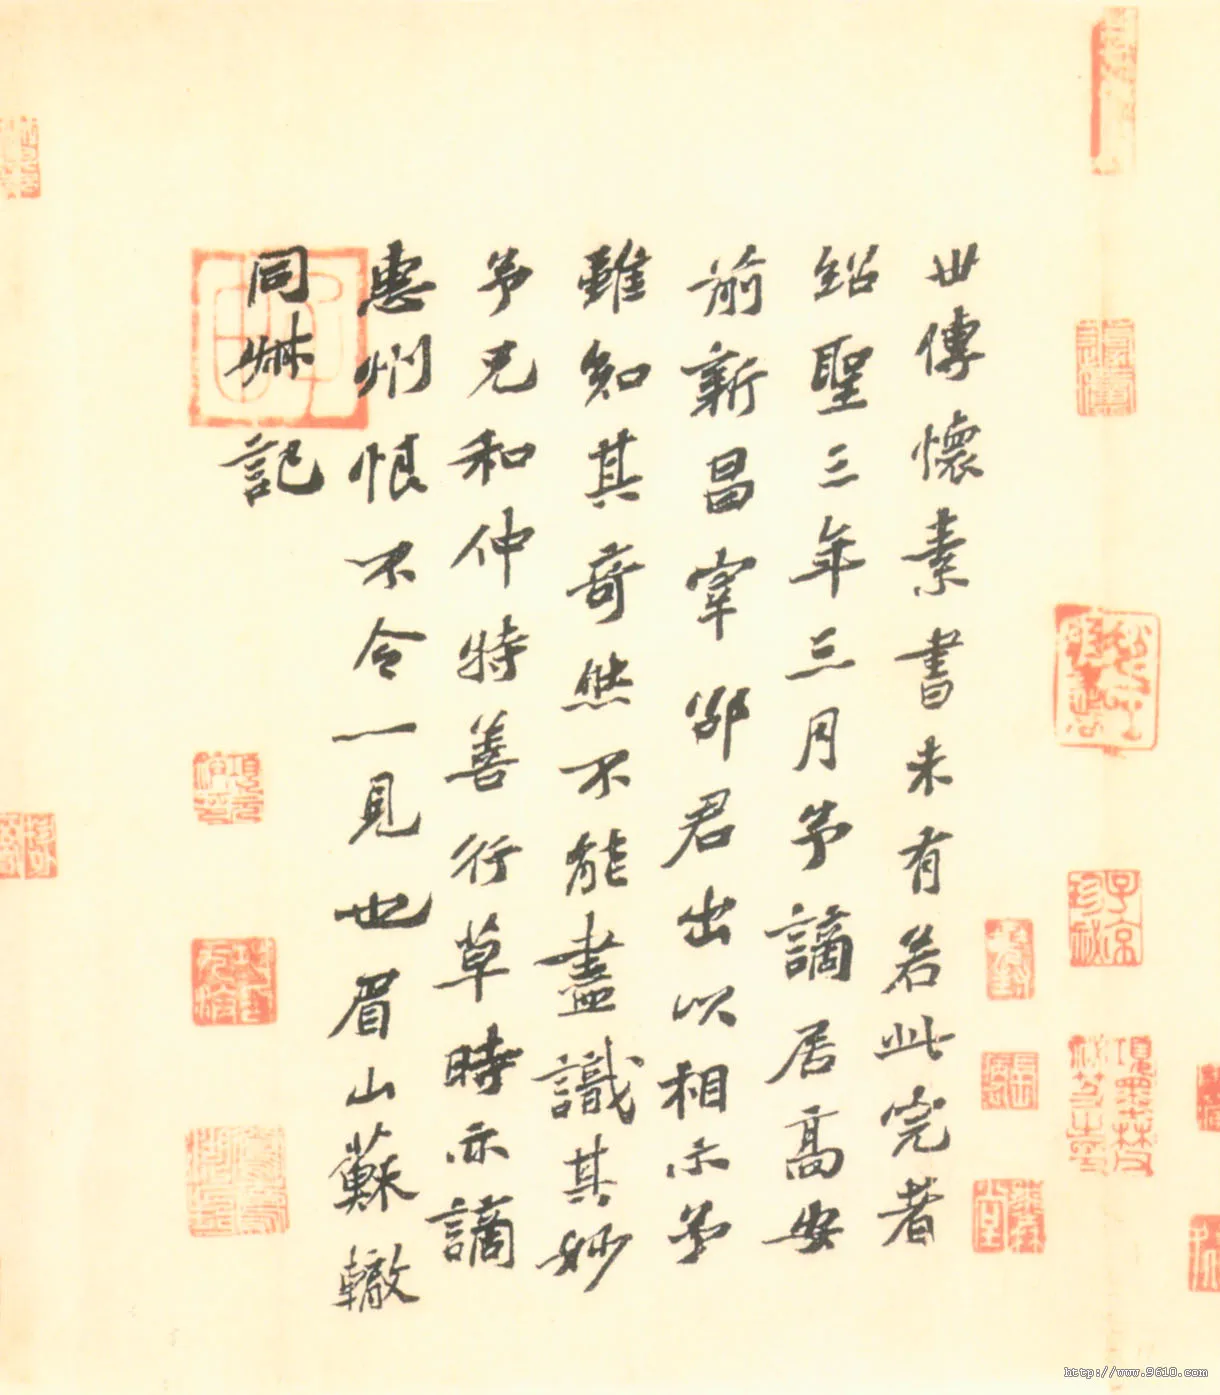 世傳懷素書未有若此完者
紹聖三年三月予謫居高安
前新昌宰邵君出以相示予
雖知其奇然不能盡識其妙
予兄和仲特善行草時亦謫
惠州恨不令一見也眉山蘇轍
同叔記
子京
珍祕
http://www.9610.com